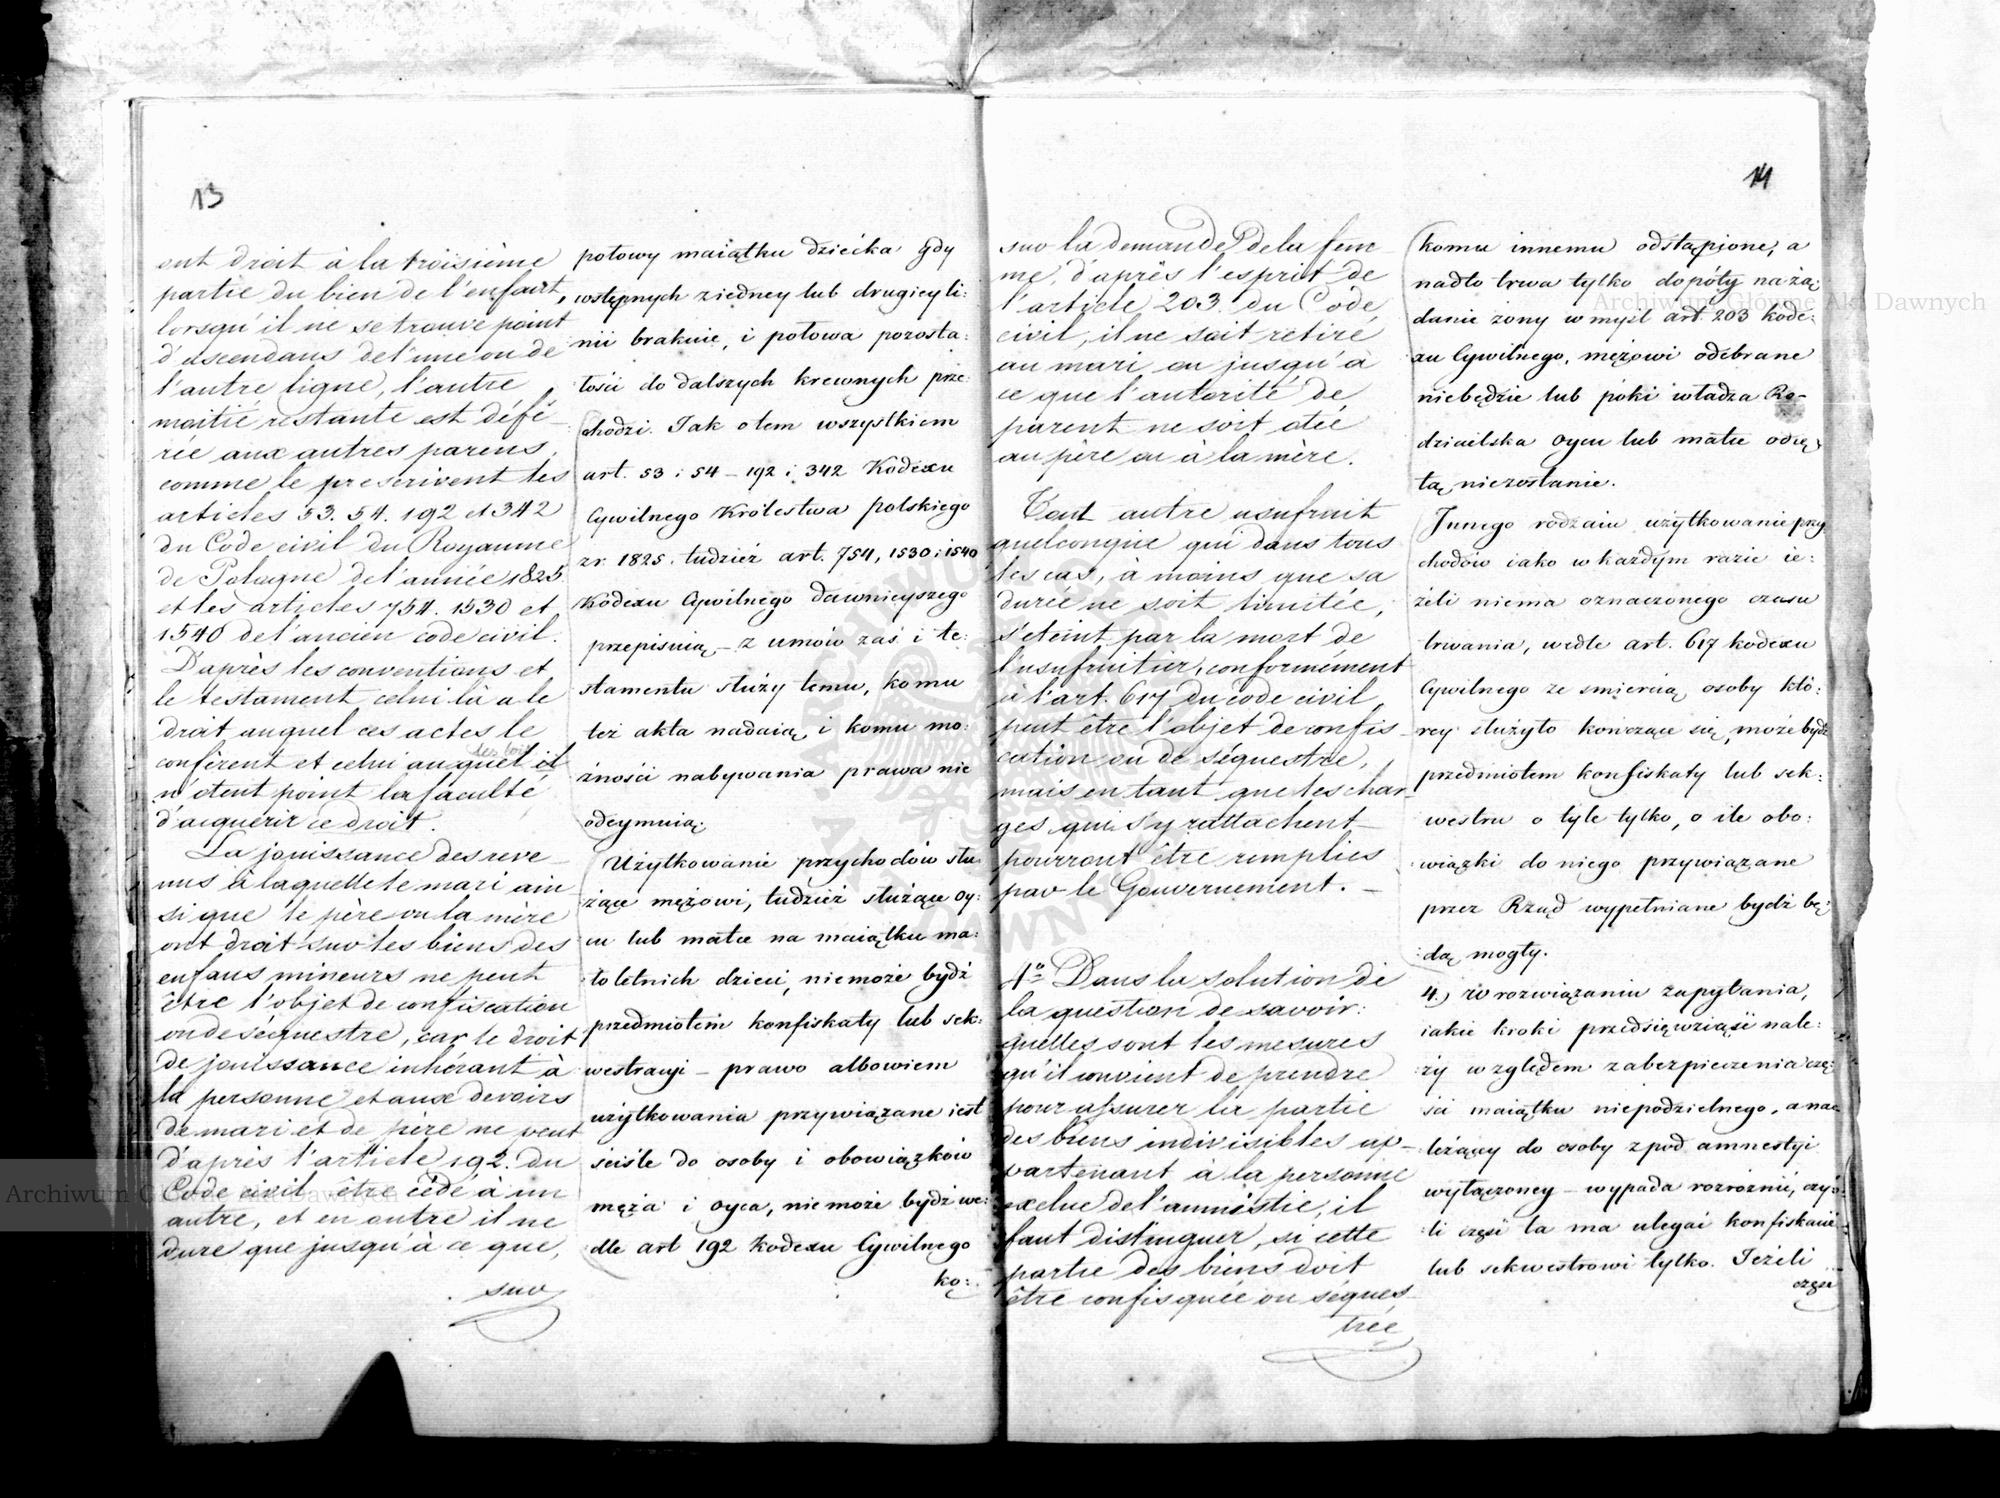 13
ont droit à la troisième
partie du bien de l'enfant,
lorsqu'il ne se trouve point
d'ascendans de l'une ou de
l'autre ligne, l'autre
moitié restante est défé-
rée aux autres parens,
comme le prescrivent les
articles 53. 54. 192 et 342
du Code civil du Royaume
de Pologne de l'année 1825
et les articles 754. 1530 et
1540 de l'ancien code civil.
D'après les conventions et
le testament celui là a le
droit auquel ces actes le
confèrent et celui auquel il
les lois
n'ôtent point la faculté
d'acquérir ce droit.
La jouissance des reve-
nus à laquelle le mari ain
si que le père ou la mère
ont droit sur les biens des
enfans mineurs ne peut
être l'objet de confiscation
ou de séquestre, car le droit
de jouissance inhérant à
la personne et aux devoirs
de mari et de père ne peut
d'après l'article 192. du
Code civil être cédé à un
autre, et en outre il ne
dure que jusqu'à ce que,
sur
połowy maiątku dziecka gdy
wstępnych z iedney lub drugiey li:
nii brakuie, i połowa pozosta:
łości do dalszych krewnych prze:
chodzi. Jak o tem wszystkiem
art. 53 i 54 – 192 i 342 Kodexu
Cywilnego Królestwa polskiego
z r. 1825. tudzież art. 754, 1530 i 1540
Kodexu Cywilnego dawnieyszego
przepisuią – z umów zaś i te:
stamentu służy temu, komu
też akta nadaią i komu mo:
żności nabywania prawa nie
odeymuią.
Użytkowanie przychodów słu
żące mężowi, tudzież służące oy:
cu lub matce na maiątku ma:
łoletnich dzieci, nie może bydź
przedmiotem konfiskaty lub sek:
westracyi – prawo albowiem
użytkowania przywiązane iest
ściśle do osoby i obowiązków
męża i oyca, nie może bydź we:
dle art 192 Kodexu Cywilnego
ko:
14
sur la demande de la fem-
me, d'après l'esprit de
l'article 203 du Code
civil, il ne soit retiré
au mari ou jusqu'à
ce que l'autorité de
parent ne soit otée
au père ou à la mère.
Tout autre usufruit
quelconque qui dans tous
les cas, à moins que sa
durée ne soit limitée,
s'éteint par la mort de
l'usufruitier, conformément
à l'art. 617 du code civil
peut être l'objet de confis-
cation ou de séquestre,
mais en tant que les char-
ges qui s'y rattachent
pourront être remplies
par le Gouvernement. –
4º Dans la solution de
la question de savoir:
quelles sont les mesures
qu'il convient de prendre
pour assurer la partie
des biens indivisibles ap-
partenant à la personne
exclue de l'amnistie, il
faut distinguer, si cette
partie des biens doit
être confisquée ou séques
tree
komu innemu odstąpione, a
nadto trwa tylko dopóty na żą:
danie żony w myśl art. 203 kode:
xu Cywilnego, mężowi odebrane
niebędzie lub póki władza Ro-
dzicielska oycu lub matce odię
tą niezostanie.
Innego rodzaiu użytkowanie przy
chodów iako w każdym razie ie:
żeli niema oznaczonego czasu
trwania, wedle art. 617 kodexu
Cywilnego ze śmiercią osoby któ:
rey służyło kończące się, może bydź
przedmiotem konfiskaty lub sek:
westru o tyle tylko, o ile obo:
wiązki do niego przywiązane
przez Rząd wypełniane bydź bę:
dą mogły.
4.) W rozwiązaniu zapytania,
iakie kroki przedsięwziąść nale:
ży względem zabezpieczenia czę:
ści maiątku niepodzielnego, a na
leżący do osoby z pod amnestyi
wyłączoney – wypada rozróżnić, czy:
li część ta ma ulegać konfiskacie
lub sekwestrowi tylko. Jeżeli
część
Archiwum Główne Akt Dawnych